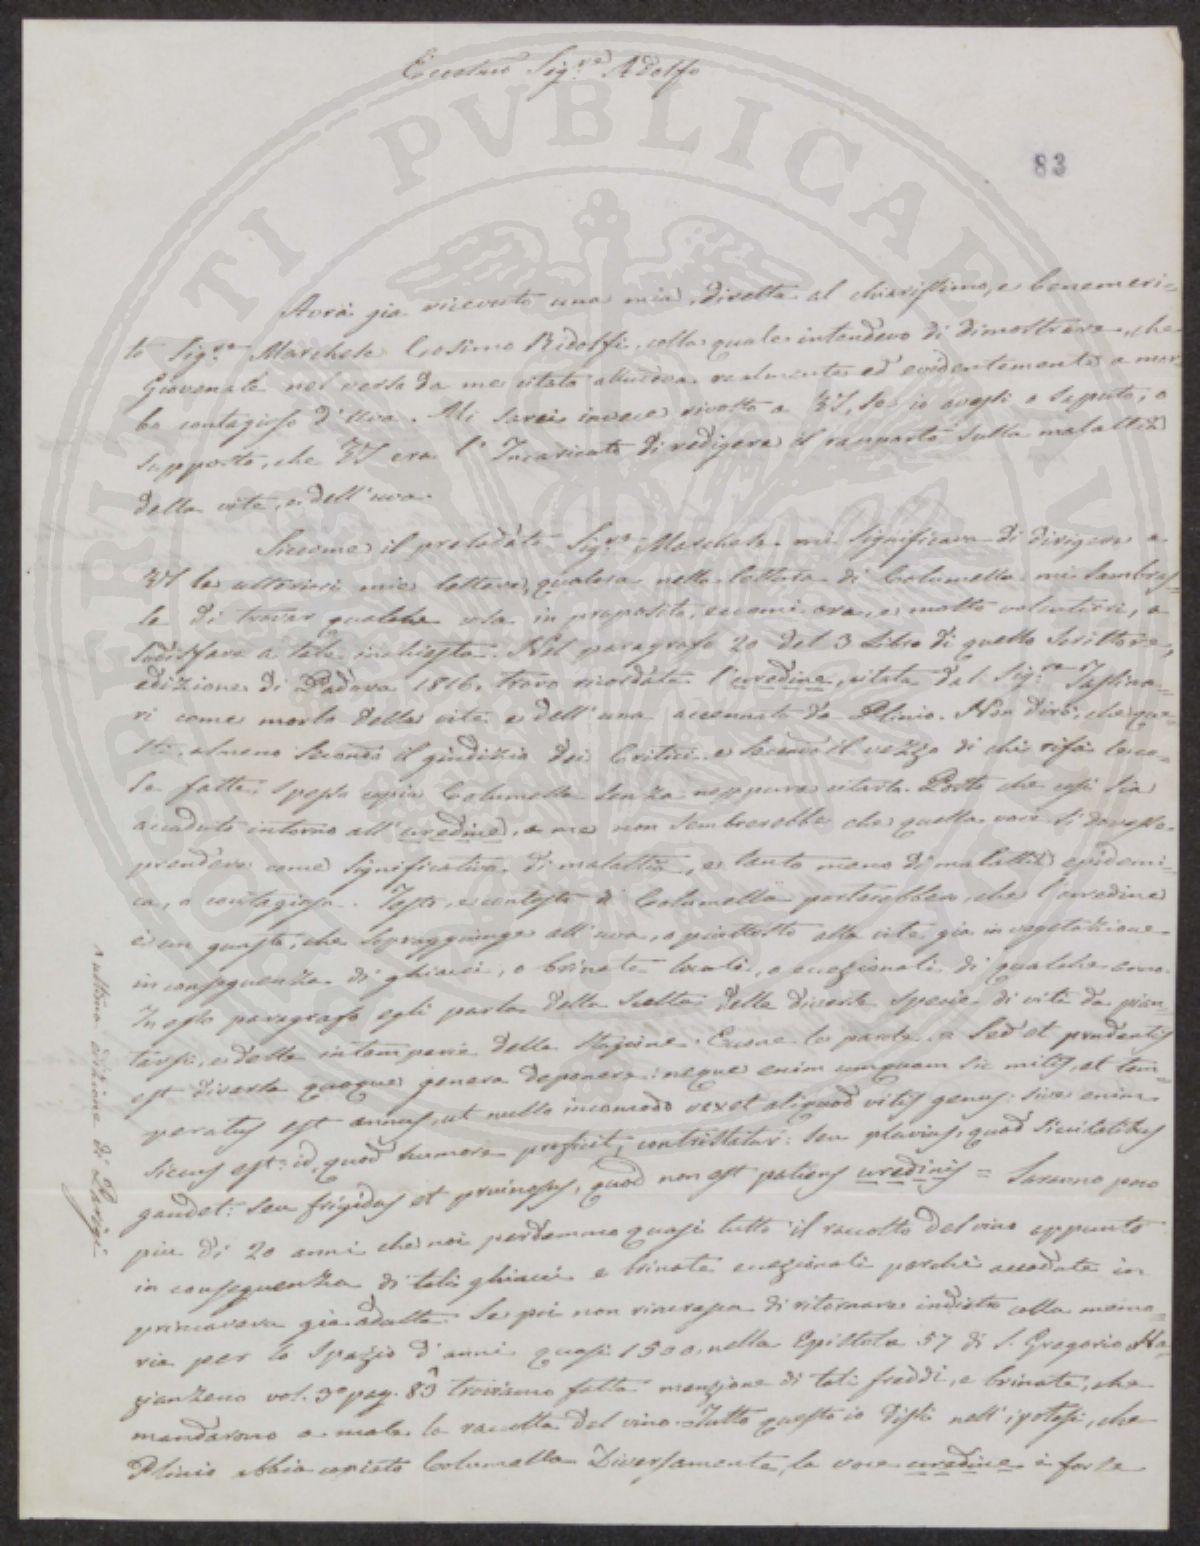 Eccelmo Sig.re Adolfo
83
Avrà già ricevuto una mia, diretta al chiarissimo, e benemeri-
to Sig.re Marchese Cosimo Ridolfi, colla quale intendevo di dimostrare, che
Giovenale nel verso da me citato alludeva realmente ed evidentemente a mor-
bo contagioso d'uva. Mi sarei invece rivolto a VS, se io avessi o saputo, o
supposto, che VS era l'Incaricato di redigere il rapporto sulla malattia
della vite, e dell'uva.
Siccome il prelodato Sig.re Marchese mi significava di dirigere a
VS le ulteriori mie lettere, qualora nella lettura di Columella mi sembras-
se di trovar qualche cosa in proposito, eccomi ora, e molto volentieri, a
sodisfare a tale inchiesta. Nel paragrafo 20 del 3 Libro di quello Scrittore,
edizione di Padova 1816, trovo ricordata l'uredine, citata dal Sig.re
ri come morbo della vite e dell'uva accennato da Plinio. Non dirò, che que-
sti, almeno secondo il giudizio dei Critici, e secondo il vezzo di chi rifà le co-
se fatte, spesso copia Columella senza neppure citarlo. Posto che così sia
accaduto intorno all'uredine, a me non sembrerebbe che quella voce si dovesse
prendere come significativa di malattia, e tanto meno di malattia epidemi-
ca, o contagiosa. Testo, e contesto di Columella porterebbero, che l'uredine
è un guasto, che sopraggiunge all'uva, o piuttosto alla vite già in vegetazione
in conseguenza di ghiacci, o brinate locali, o eccezionali di qualche anno.
In esso paragrafo egli parla della scelta delle diverse specie di vite da pian-
tarsi, e delle intemperie della stagione. Eccone le parole = Sed et prudentis
est diversa quoque genera deponere: neque enim umquam sic mitis, et tem-
peratus est annus, ut nullo incomodo vexet aliquod vitis genus: sive enim
siccus est: id, quod humore proficit, contristatur: seu pluvius, quod siccitatibus
gaudet: seu frigidus et pruinosus, quod non est patiens uredinis = Saranno poco
più di 20 anni che noi perdemmo quasi tutto il raccolto del vino appunto
in conseguenza di tali ghiacci e brinate eccezionali perchè accadute in
primavera già adulta. Se poi non rincresca di ritornare indietro colla memo-
ria per lo spazio d'anni quasi 1500, nella Epistola 57 di S. Gregorio Na-
zianzeno vol. 3° pag. 83^ troviamo fatta menzione di tali freddi, e brinate, che
mandarono a male la raccolta del vino. Tutto questo io dissi nell'ipotesi, che
Plinio abbia copiato Columella. Diversamente, la voce uredine è forse
^ ultima edizione di Parigi